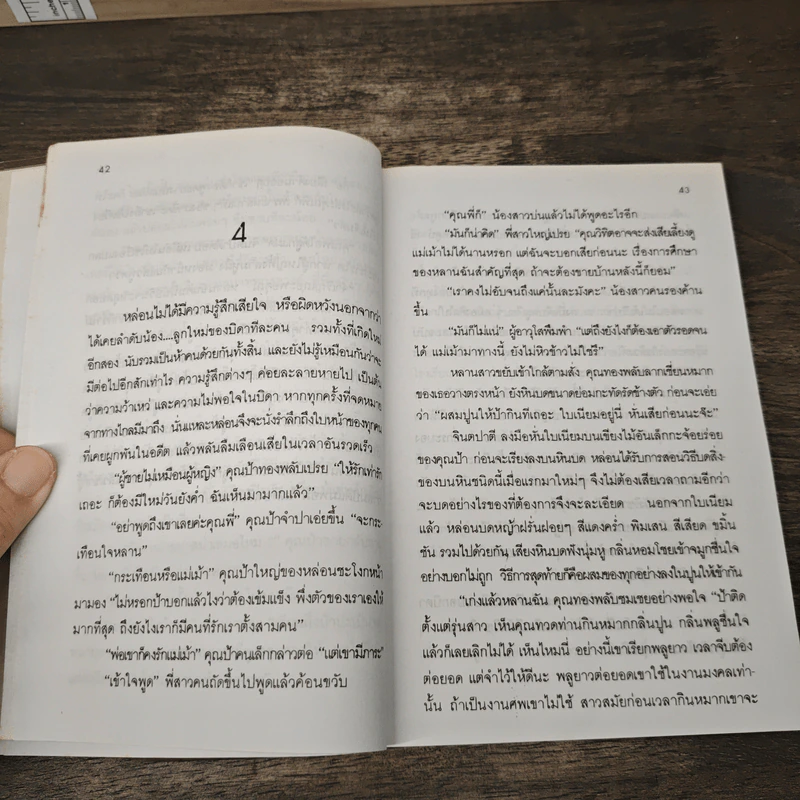 42
4
หล่อนไม่ได้มีความรู้สึกเสียใจ หรือผิดหวังนอกจากว่า
ได้เคยลำดับน้อง....ลูกใหม่ของบิดาทีละคน รวมทั้งที่เกิดใหม่
อีกสอง นับรวมเป็นห้าคนด้วยกันทั้งสิ้น และยังไม่รู้เหมือนกันว่าจะ
มีต่อไปอีกสักเท่าไร ความรู้สึกต่างๆ ค่อยละลายหายไป เป็นต้น
ว่าความว้าเหว่ และความไม่พอใจในบิดา หากทุกครั้งที่จดหมาย
จากทางไกลมีมาถึง นั่นแหละหล่อนจึงจะนั่งรำลึกถึงใบหน้าของทุกคน
ที่เคยผูกพันในอดีต แล้วพลันลืมเลือนเสียในเวลาอันรวดเร็ว
“ผู้ชายไม่เหมือนผู้หญิง” คุณป้าทองพลับเปรย “ให้รักเท่ารัก
เถอะ ก็ต้องมีใหม่วันยังค่ำ ฉันเห็นมามากแล้ว”
“อย่าพูดถึงเขาเลยค่ะคุณพี่” คุณป้าจำปาเอ่ยขึ้น “จะกระ-
เทือนใจหลาน”
“กระเทือนหรือแม่เม้า” คุณป้าใหญ่ของหล่อนชะโงกหน้า
มามอง “ไม่หรอกป้าบอกแล้วไงว่าต้องเข้มแข็ง พึ่งตัวของเราเองให้
มากที่สุด ถึงยังไงเราก็มีคนที่รักเราตั้งสามคน”
“พ่อเขาก็คงรักแม่เม้า” คุณป้าคนเล็กกล่าวต่อ “แต่เขามีภาระ”
“เข้าใจพูด” พี่สาวคนถัดขึ้นไปพูดแล้วค้อนขวับ
43
“คุณพี่ก็” น้องสาวบ่นแล้วไม่ได้พูดอะไรอีก
“มันก็น่าคิด” พี่สาวใหญ่เปรย “คุณวิทิตอาจจะส่งเสียเลี้ยงดู
แม่เม้าไม่ได้นานหรอก แต่ฉันจะบอกเสียก่อนนะ เรื่องการศึกษา
ของหลานฉันสำคัญที่สุด ถ้าจะต้องขายบ้านหลังนี้ก็ยอม”
“เราคงไม่อับจนถึงแค่นั้นละมังคะ” น้องสาวคนรองค้าน
ขึ้น
“มันก็ไม่แน่” ผู้อาวุโสพึมพำ “แต่ถึงยังไงก็ต้องเอาตัวรอดจน
ได้ แม่เม้ามาทางนี้ ยังไม่หิวข้าวไม่ใช่รึ”
หลานสาวขยับเข้าใกล้ตามสั่ง คุณทองพลับลากเชี่ยนหมาก
ของเธอวางตรงหน้า ยังหินบดขนาดย่อมกะทัดรัดข้างตัว ก่อนจะเอ่ย
ว่า “ผสมปูนให้ป้ากินทีเถอะ ใบเนียมอยู่นี่ หั่นเสียก่อนนะจ๊ะ”
จินตปาตี ลงมือหั่นใบเนียมบนเขียงไม้อันเล็กกะจ้อยร่อย
ของคุณป้า ก่อนจะเรียงลงบนหินบด หล่อนได้รับการสอนวิธีบดสิ่ง-
ของบนหินชนิดนี้เมื่อแรกมาใหม่ๆ จึงไม่ต้องเสียเวลาถามอีกว่า
จะบดอย่างไรของที่ต้องการจึงจะละเอียด นอกจากใบเนียม
แล้ว หล่อนบดหญ้าฝรั่นฝอยๆ สีแดงคร่ำ พิมเสน สีเสียด ขมิ้น
ชัน รวมไปด้วยกัน เสียงหินบดฟังนุ่มหู กลิ่นหอมโชยเข้าจมูกชื่นใจ
อย่างบอกไม่ถูก วิธีการสุดท้ายก็คือผสมของทุกอย่างลงในปูนให้เข้ากัน
“เก่งแล้วหลานฉัน คุณทองพลับชมเชยอย่างพอใจ “ป้าติด
ตั้งแต่รุ่นสาว เห็นคุณทวดท่านกินหมากกลิ่นปูน กลิ่นพลูชื่นใจ
แล้วก็เลยเลิกไม่ได้ เห็นไหมนี่ อย่างนี้เขาเรียกพลูยาว เวลาจีบต้อง
ต่อยอด แต่จำไว้ให้ดีนะ พลูยาวต่อยอดเขาใช้ในงานมงคลเท่า-
นั้น ถ้าเป็นงานศพเขาไม่ใช้ สาวสมัยก่อนเวลากินหมากเขาจะ